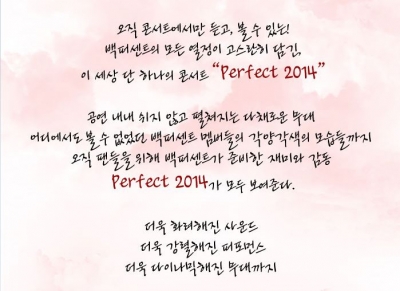 오직 콘서트에서만 듣고, 볼 수 있는!
백퍼센트의 모든 열정이 고스란히 담긴,
이 세상 단 하나의 콘서트 “Perfect 2014”
공연 내내 쉬지 않고 펼쳐지는 다채로운 무대
어디에서도 볼 수 없었던 백퍼센트 멤버들의 각양각색의 모습들까지
오직 팬들을 위해 백퍼센트가 준비한 재미와 감동
Perfect 2014가 모두 보여준다.
더욱 화려해진 사운드
더욱 강렬해진 퍼포먼스
더욱 다이나믹해진 무대까지